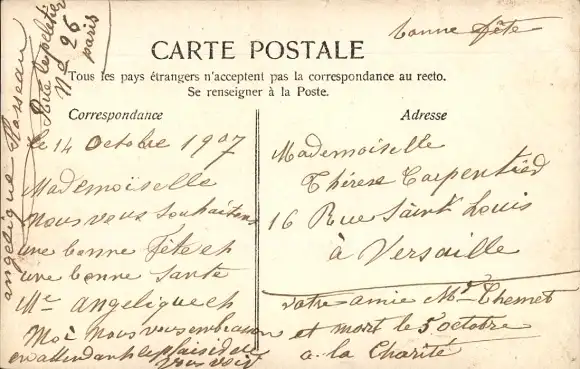 bonne fête
Rue lepeletier
No 26
paris
angelique
CARTE POSTALE
Tous les pays étrangers n'acceptent pas la correspondance au recto.
Se renseigner à la Poste.
Correspondance
le 14 Octobre 1907
Mademoiselle
nous vous souhaitons
une bonne fête et
une bonne santé
Me angelique et
Moi nous vous embrasson
en attendant le plaisid de
vous voir
Adresse
Mademoiselle
Thérese Carpentied
16 Rue Saint Louis
à Versaille
votre amie Mr Themet
et mort le 5 octobre
a la Charité